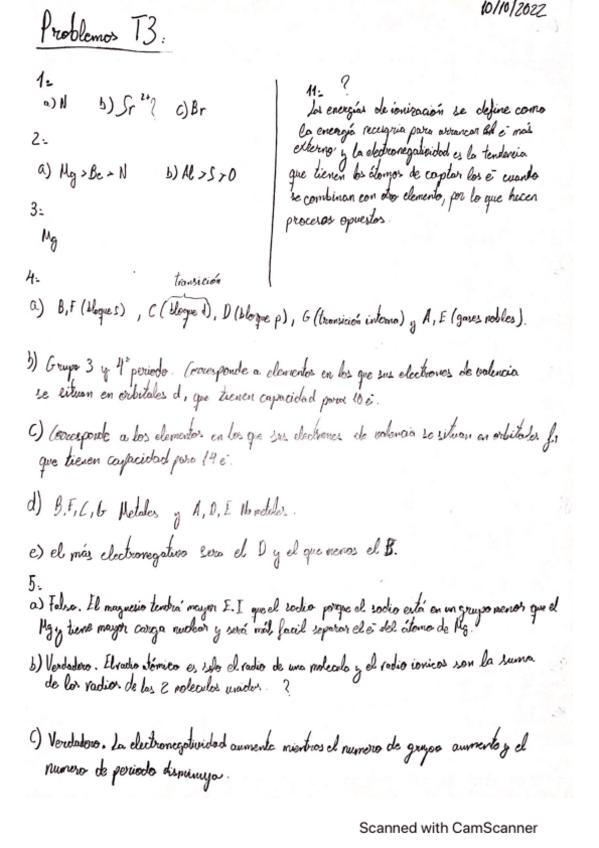 10/10/2022
Problemas T3:
1:
a) N b) Sr²⁺? c) Br
2:
a) Mg > Be > N b) Al > S > O
3:
Mg
11: ?
Las energías de ionización se define como
la energía necesaria para arrancar el é más
externo y la electronegatividad es la tendencia
que tienen los átomos de captar los é cuando
se combinan con otro elemento, por lo que hacen
procesos opuestos.
4:
transición
a) B,F (bloque s), C (bloque d), D (bloque p), G (transición interna) y A, E (gases nobles).
b) Grupo 3 y 4º periodo. Corresponde a elementos en los que sus electrones de valencia
se situan en orbitales d, que tienen capacidad para 10 é.
C) Corresponde a los elementos en los que sus electrones de valencia se situan en orbitales f,
que tienen capacidad para 14 é.
d) B,F,C,G Metales y A, D, E No metales.
e) el más electronegativo sera el D y el que menos el B.
5:
a) Falso. El magnesio tendrá mayor E.I que el sodio porque el sodio está en un grupo menos que el
Mg y tiene mayor carga nuclear y será más facil separar el é del átomo de Mg.
b) Verdadero. El radio atómico es solo el radio de una molecula y el radio ionicos son la suma
de los radios de las 2 moleculas unidas. ?
C) Verdadero. La electronegatividad aumenta mientras el numero de grupo aumenta y el
numero de periodo disminuya.
Scanned with CamScanner